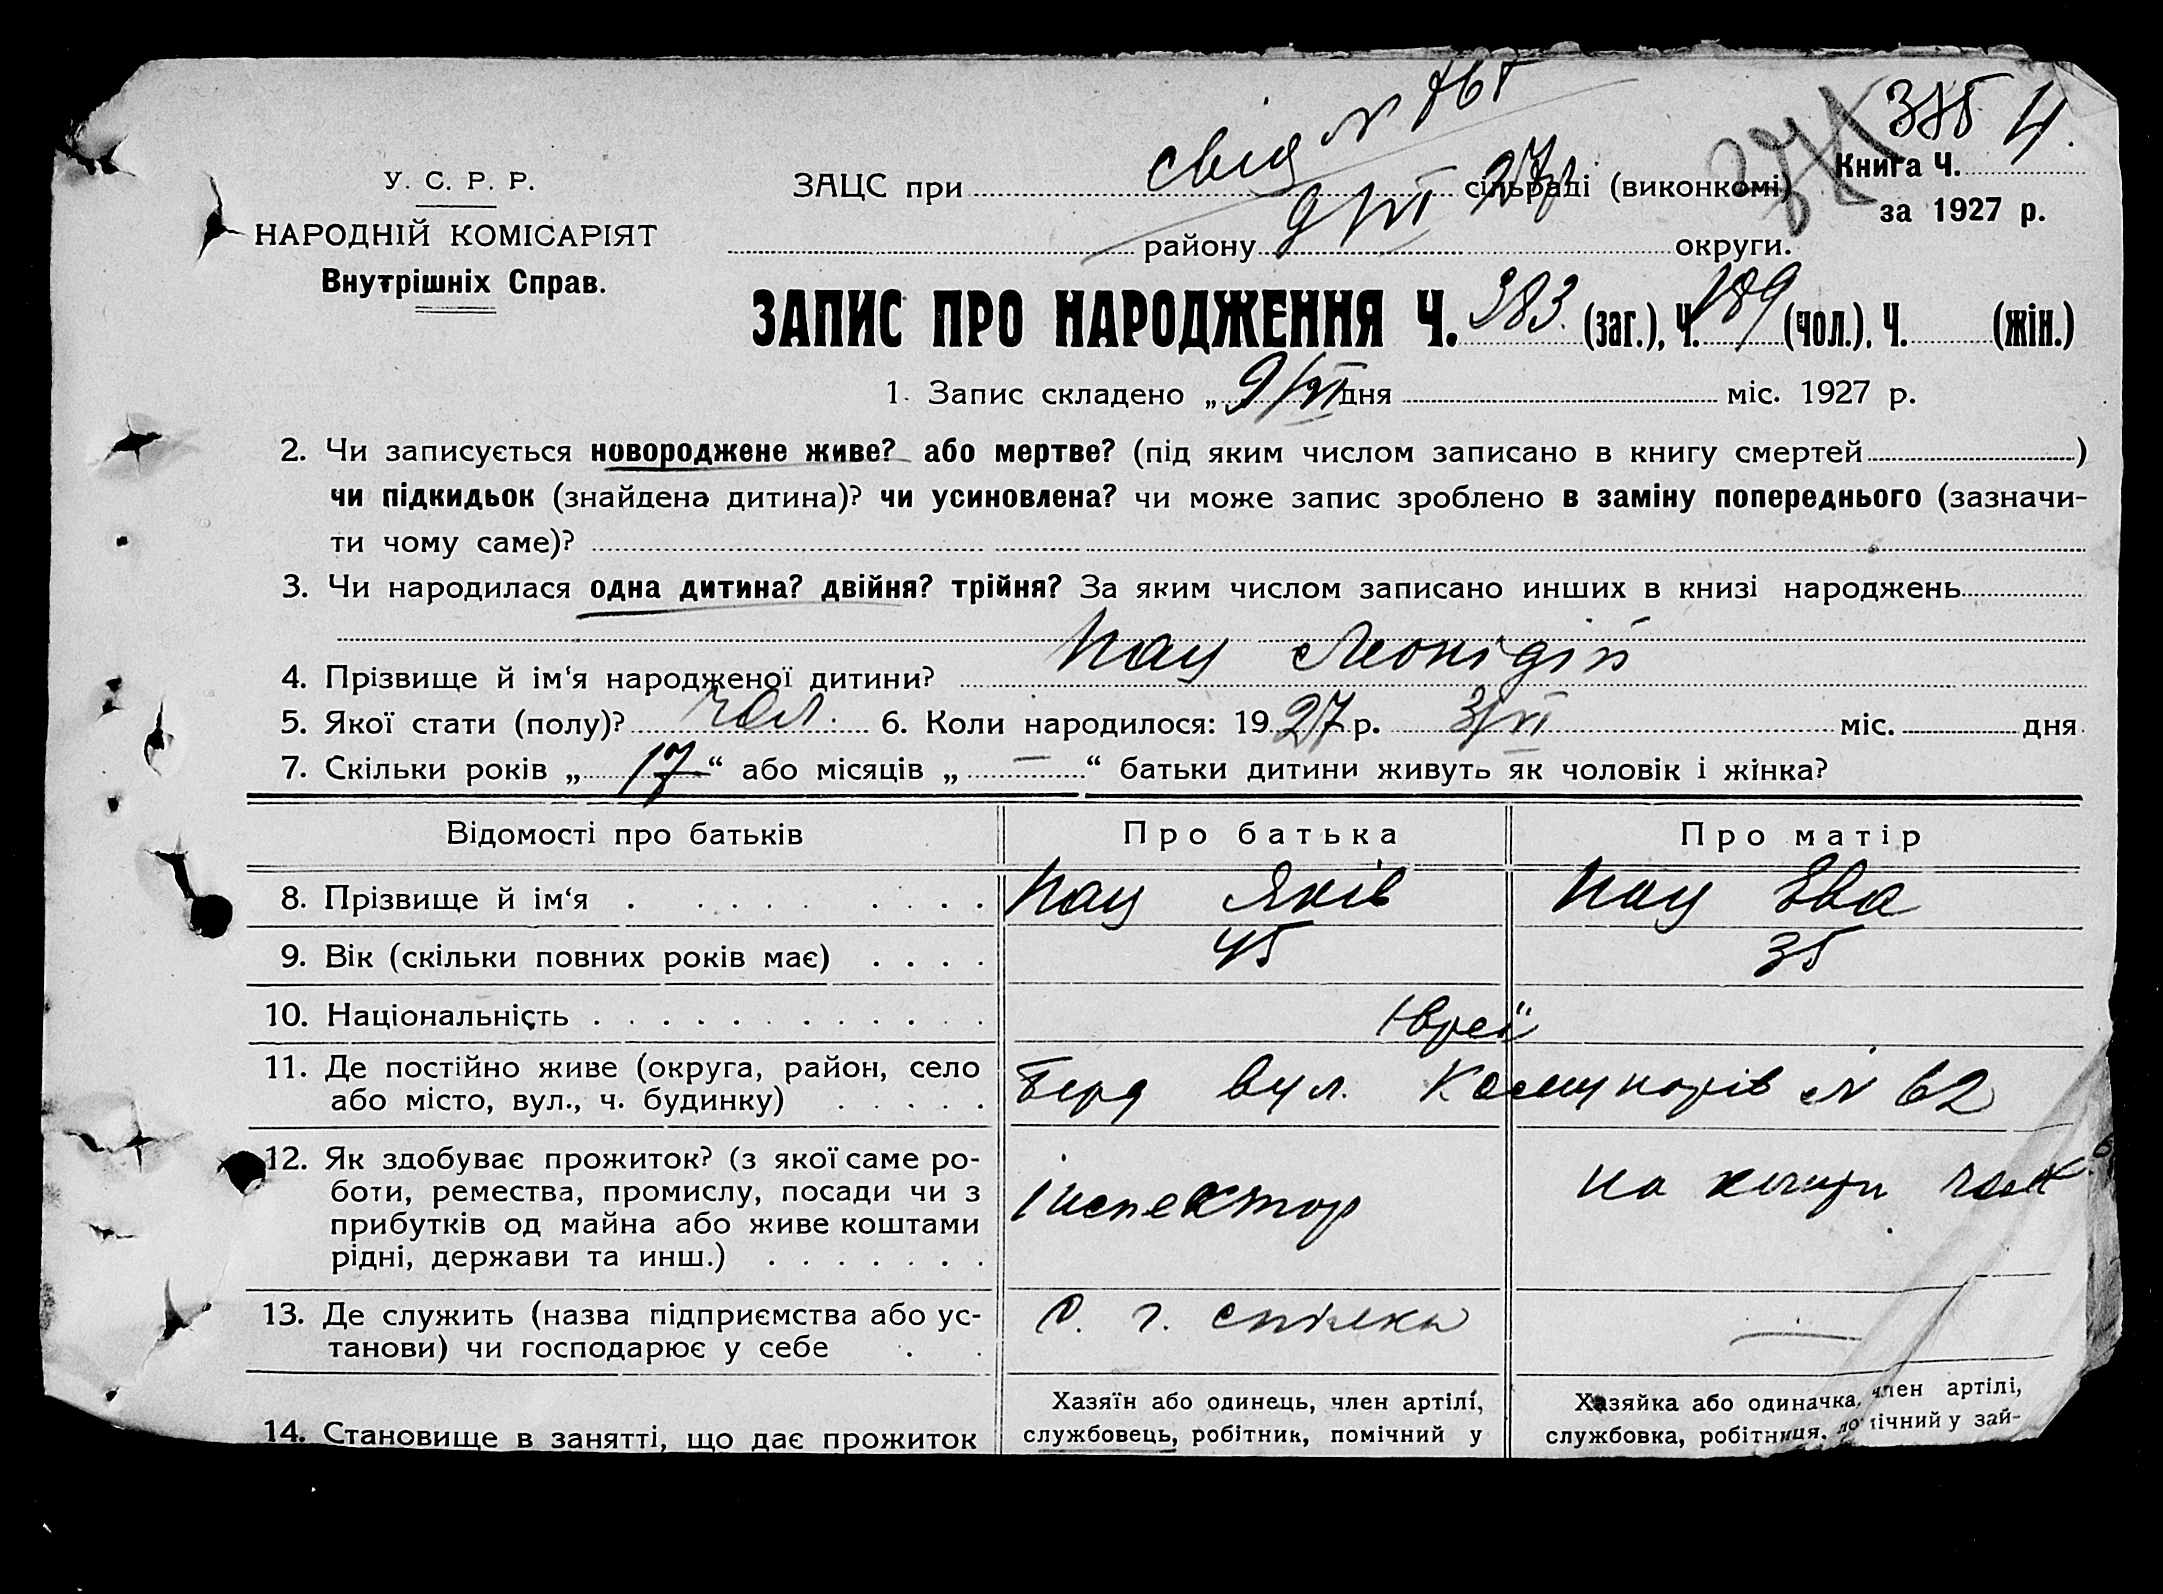 375 4
Свід N
У. С. Р. Р.
НАРОДНІЙ КОМІСАРІЯТ
Внутрішніх Справ.
ЗАЦС при сільраді (виконкомі)
Книга Ч.
за 1927 р.
9/VI 27р
району округи.
ЗАПИС ПРО НАРОДЖЕННЯ Ч. 383. (заг.), Ч. 189 (чол.), Ч. (жін.)
1. Запис складено „ 9/VI дня міс. 1927 р.
2. Чи записується новороджене живе? або мертве? (під яким числом записано в книгу смертей )
чи підкидьок (знайдена дитина)? чи усиновлена? чи може запис зроблено в заміну попереднього (зазначи-
ти чому саме)?
3. Чи народилася одна дитина? двійня? трійня? За яким числом записано инших в книзі народжень
4. Прізвище й ім‘я народженої дитини? Кац Леонідій
5. Якої стати (полу)? чол. 6. Коли народилося: 1927 р. 3/VI міс. дня
7. Скільки років „ 17 “ або місяців „ — “ батьки дитини живуть як чоловік і жінка?
Відомості про батьків Про батька Про матір
8. Прізвище й ім‘я Кац Яків Кац Єва
9. Вік (скільки повних років має) 45 35
10. Національність Євреї
11. Де постійно живе (округа, район, село
або місто, вул., ч. будинку) Берд вул. Комунарів N 62
12. Як здобуває прожиток? (з якої саме ро-
боти, ремества, промислу, посади чи з
прибутків од майна або живе коштами
рідні, держави та инш.) інспектор на
13. Де служить (назва підприємства або ус-
танови) чи господарює у себе С. г. спілка —
14. Становище в занятті, що дає прожиток
Хазяїн або одинець, член артілі,
службовець, робітник, помічний у
Хазяйка або одиначка, член артілі,
службовка, робітниця, помічний у зай-